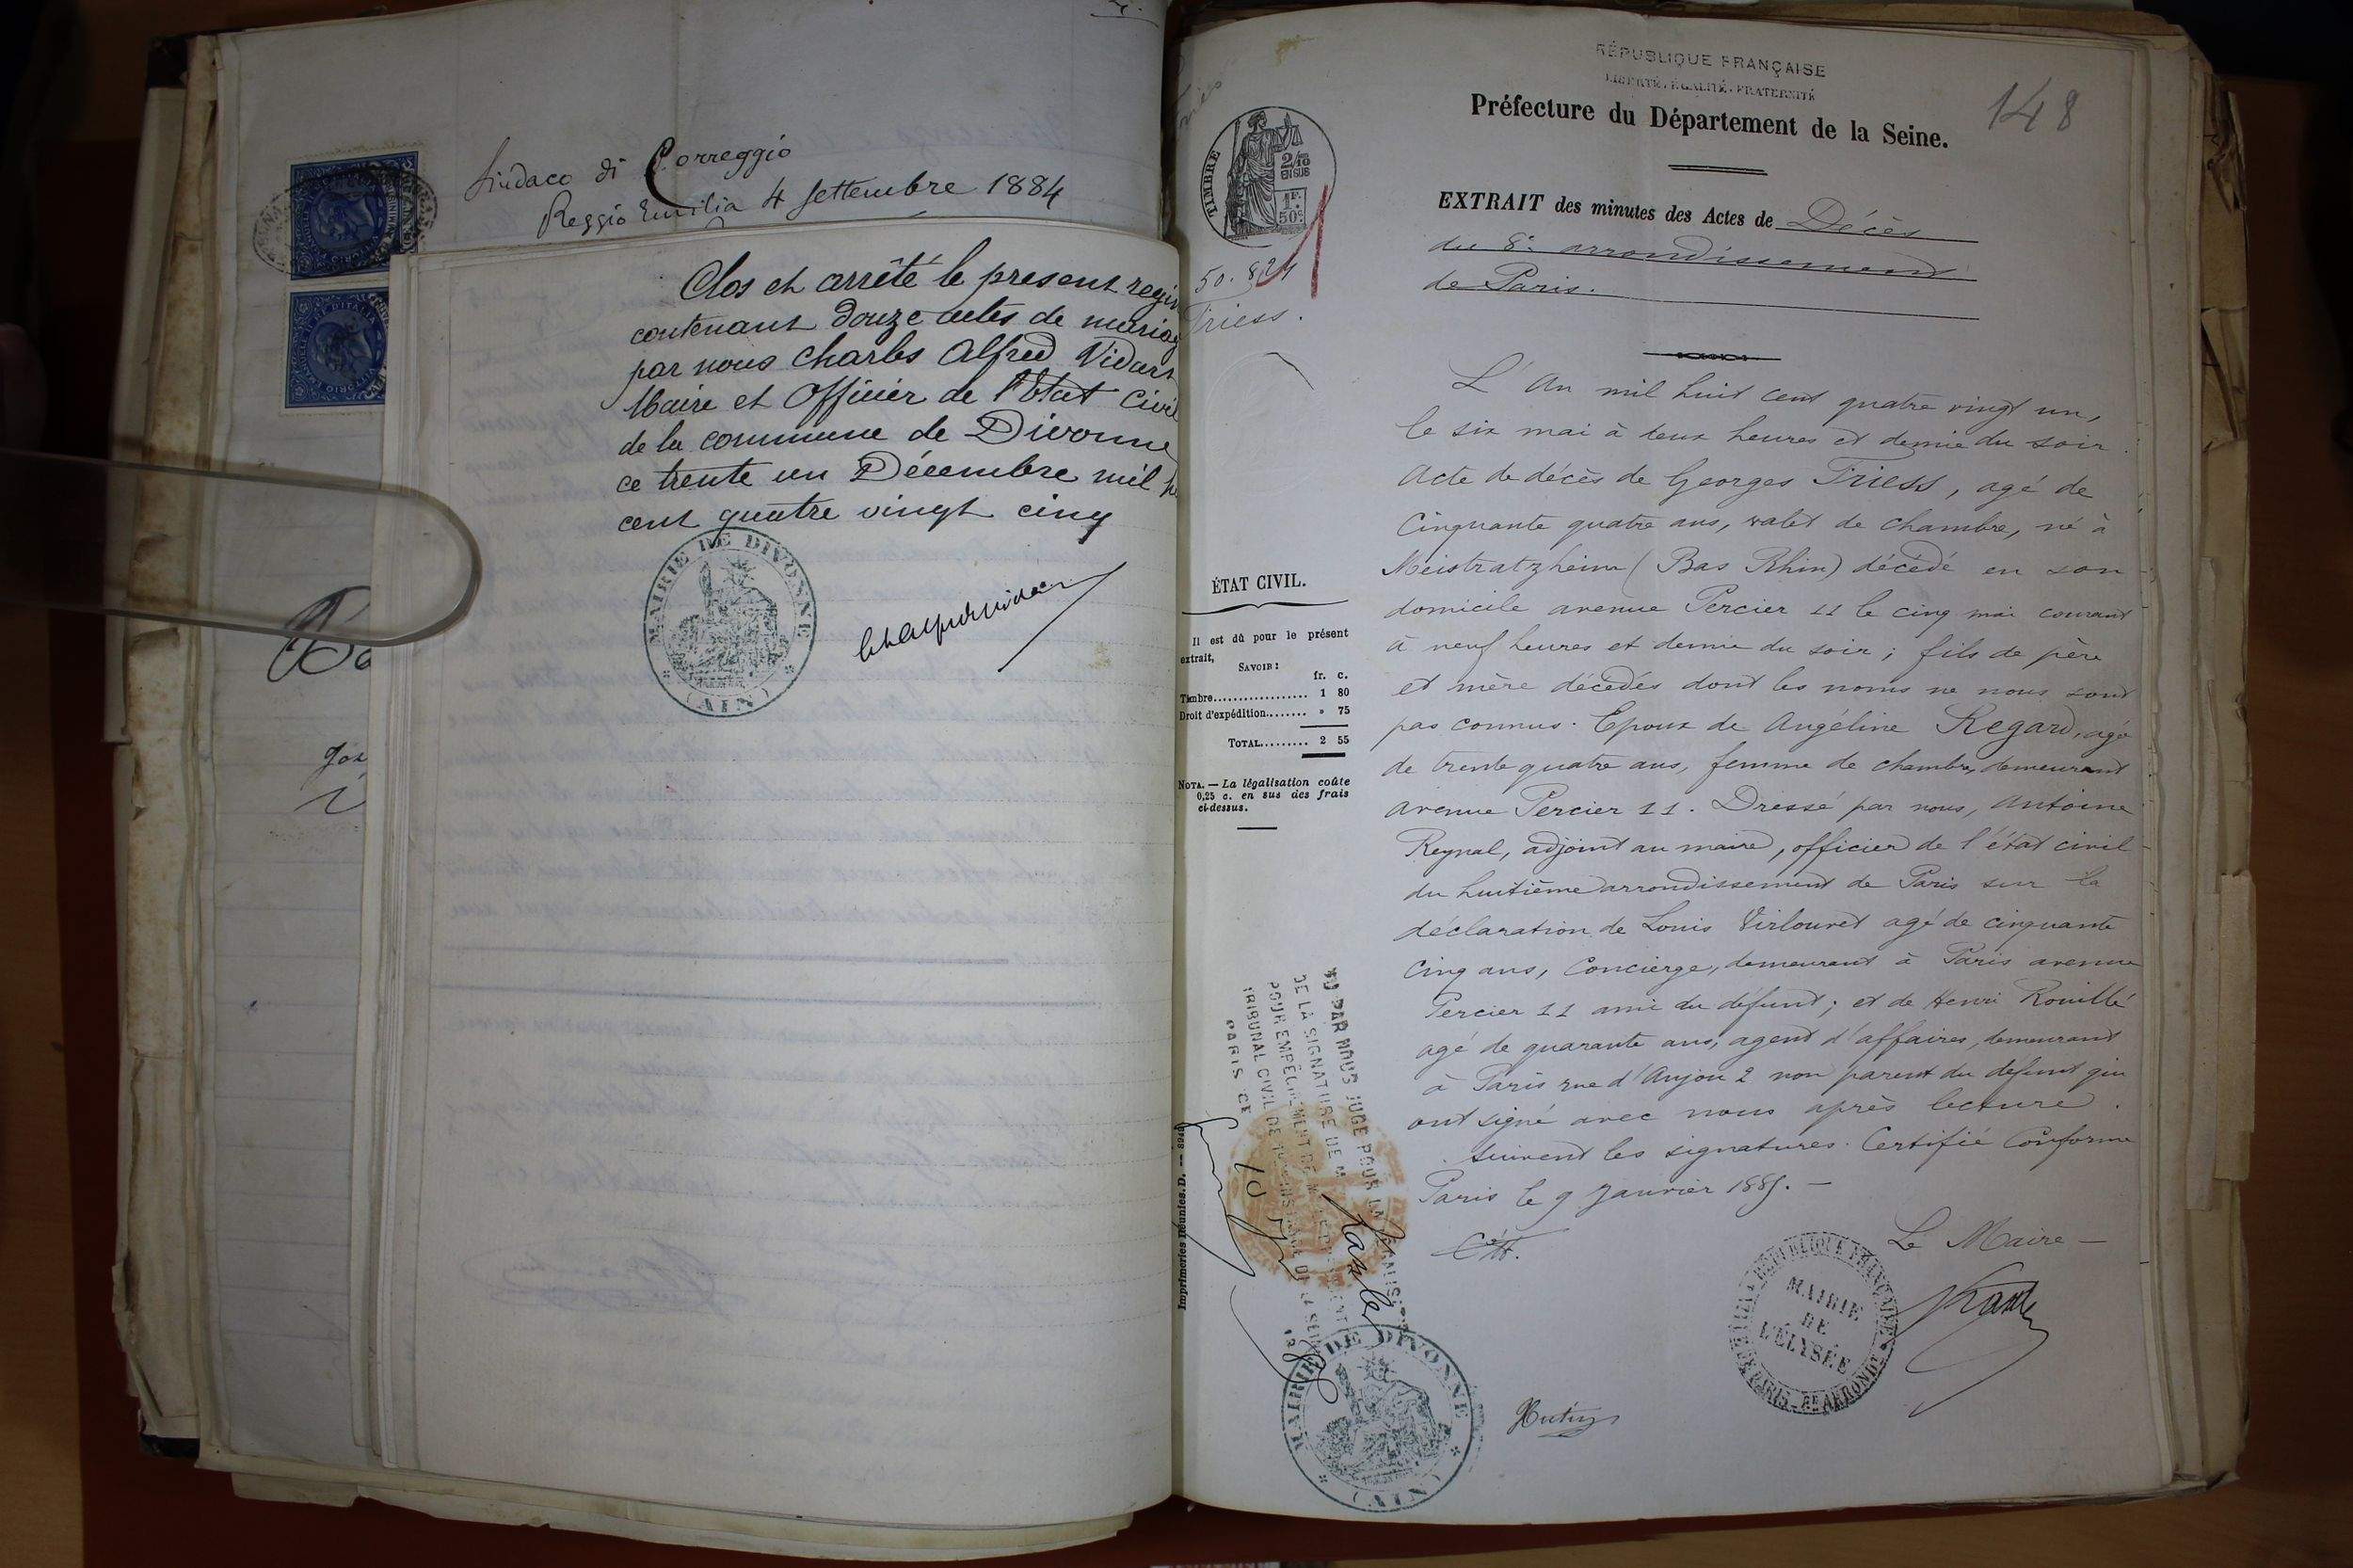 Sindaco di Correggio
Reggio Emilia 4 Settembre 1884
Clos et arrêté le present regis
contenant douze actes de mariag
par nous Charles Alfred Vidart
Maire et Officier de l'Etat Civil
de la commune de Divonne
ce trente un Décembre mil h
cent quatre vingt cinq
MAIRIE DE DIVONNE
(AIN)
148
RÉPUBLIQUE FRANÇAISE
LIBERTÉ. ÉGALITÉ. FRATERNITÉ
Préfecture du Département de la Seine.
TIMBRE
2/10
EN SUS
1F.
50c.
50.821
Triess.
EXTRAIT des minutes des Actes de Décès
du 8e arrondissement
de Paris.
L'An mil huit cent quatre vingt un,
le six mai à deux heures et demie du soir.
Acte de décès de Georges Triess, agé de
Cinquante quatre ans, valet de chambre, né à
Meistratzheim (Bas Rhin) décédé en son
domicile avenue Percier 11 le cinq mai courant
à neuf heures et demie du soir ; fils de père
et mère décédés dont les noms ne nous sont
pas connus. Epoux de Angéline Regard, agé
de trente quatre ans, femme de chambre, demeurant
avenue Percier 11. Dressé par nous, Antoine
Reynal, adjoint au maire, officier de l'état civil
du huitième arrondissement de Paris sur la
déclaration de Louis Virlouvet agé de cinquante
Cinq ans, Concierge, demeurant à Paris avenue
Percier 11 ami du défunt ; et de Henri Rouillé
agé de quarante ans, agent d'affaires, demeurant
à Paris rue d'Anjou 2 non parent du défunt qui
ont signé avec nous après lecture.
Suivent les signatures. Certifié Conforme
Paris le 9 Janvier 1885. —
Le Maire —
ÉTAT CIVIL.
Il est dû pour le présent
extrait,
SAVOIR :
fr. c.
Timbre.................. 1 80
Droit d'expédition........ » 75
TOTAL......... 2 55
NOTA. — La légalisation coûte
0,25 c. en sus des frais
ci-dessus.
Imprimeries Réunies. D. —
VU PAR NOUS JUGE POUR LA LÉGALIS
DE LA SIGNATURE DE M
POUR EMPÊCHEMENT DE M. LE
TRIBUNAL CIVIL DE 1re INSTANCE DE LA SEINE
PARIS CE
10
RÉPUBLIQUE FRANÇAISE
MAIRIE
DE
L'ÉLYSÉE
VILLE DE PARIS - 8E ARRONDT
MAIRIE DE DIVONNE
(AIN)